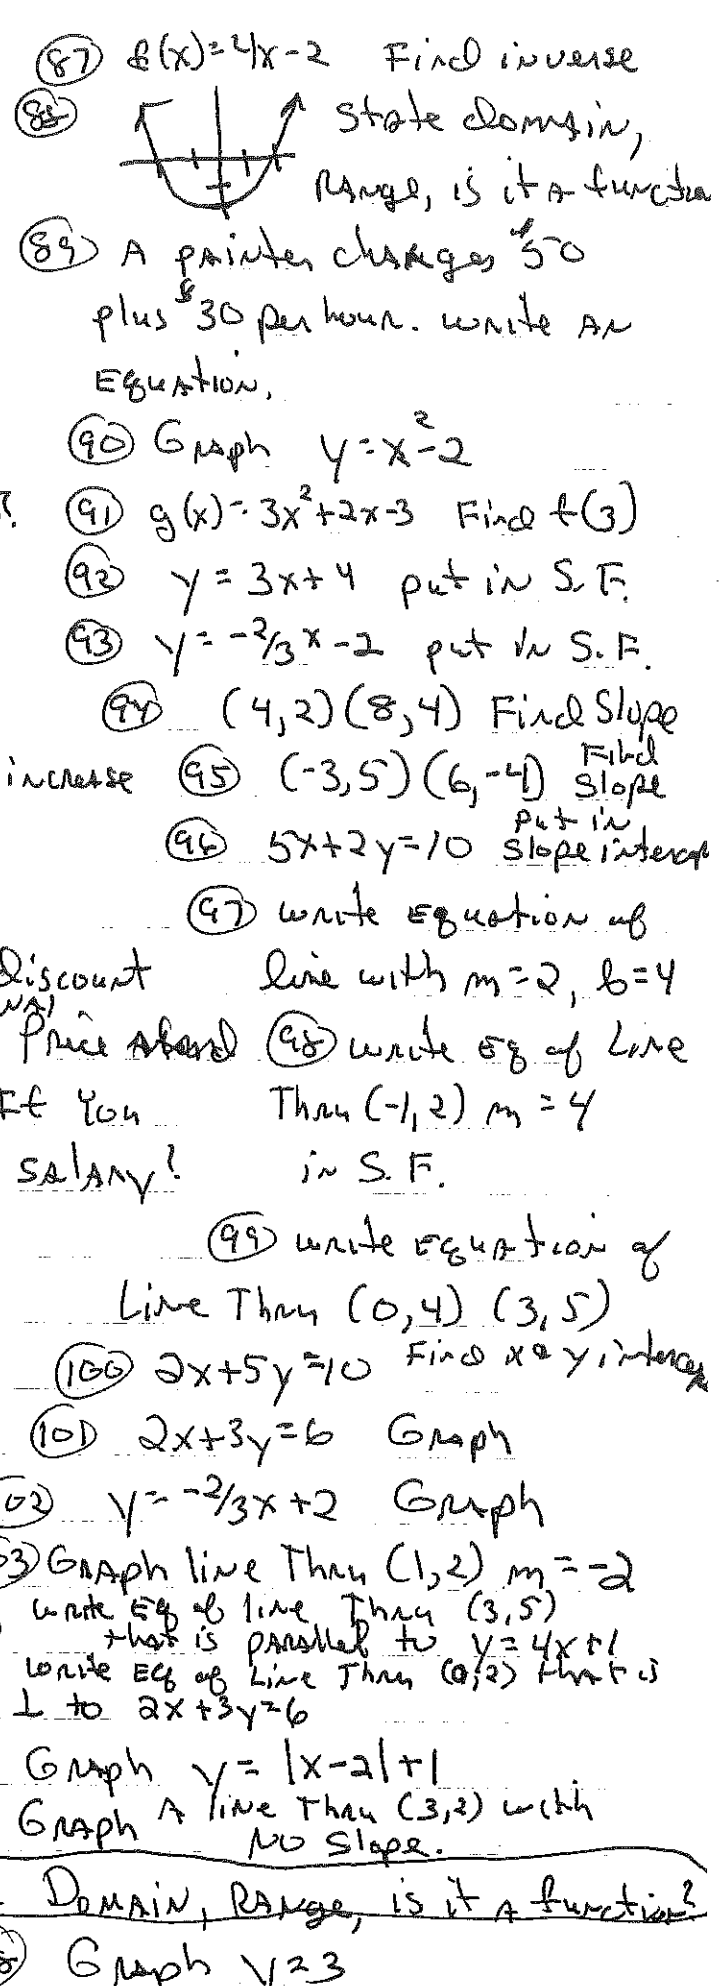 87 f(x)=4x-2 Find inverse
88 State domain,
Range, is it a function
89 A painter charges $50
plus $30 per hour. write an
Equation.
90 Graph y=x²-2
91 g(x)=3x²+2x-3 Find f(3)
92 y=3x+4 put in S.F.
93 y=-2/3x-2 put in S.F.
94 (4,2)(8,4) Find Slope
increase 95 (-3,5)(6,-4) Find Slope
96 5x+2y=10 put in Slope intercep
97 write Equation of
Discount line with m=2, b=4
Price 98 write Eq of Line
If You Thru (-1,2) m=4
salary? in S.F.
99 write Equation of
Line Thru (0,4) (3,5)
100 2x+5y=10 Find x & y intercep
101 2x+3y=6 Graph
02 y=-2/3x+2 Graph
03 Graph line Thru (1,2) m=-2
write Eq of line Thru (3,5)
that is parallel to y=4x+1
write Eq of Line Thru (0,2) that is
⊥ to 2x+3y=6
Graph y=|x-2|+1
Graph A line Thru (3,2) with
No Slope.
Domain, Range, is it a function?
8 Graph y=3